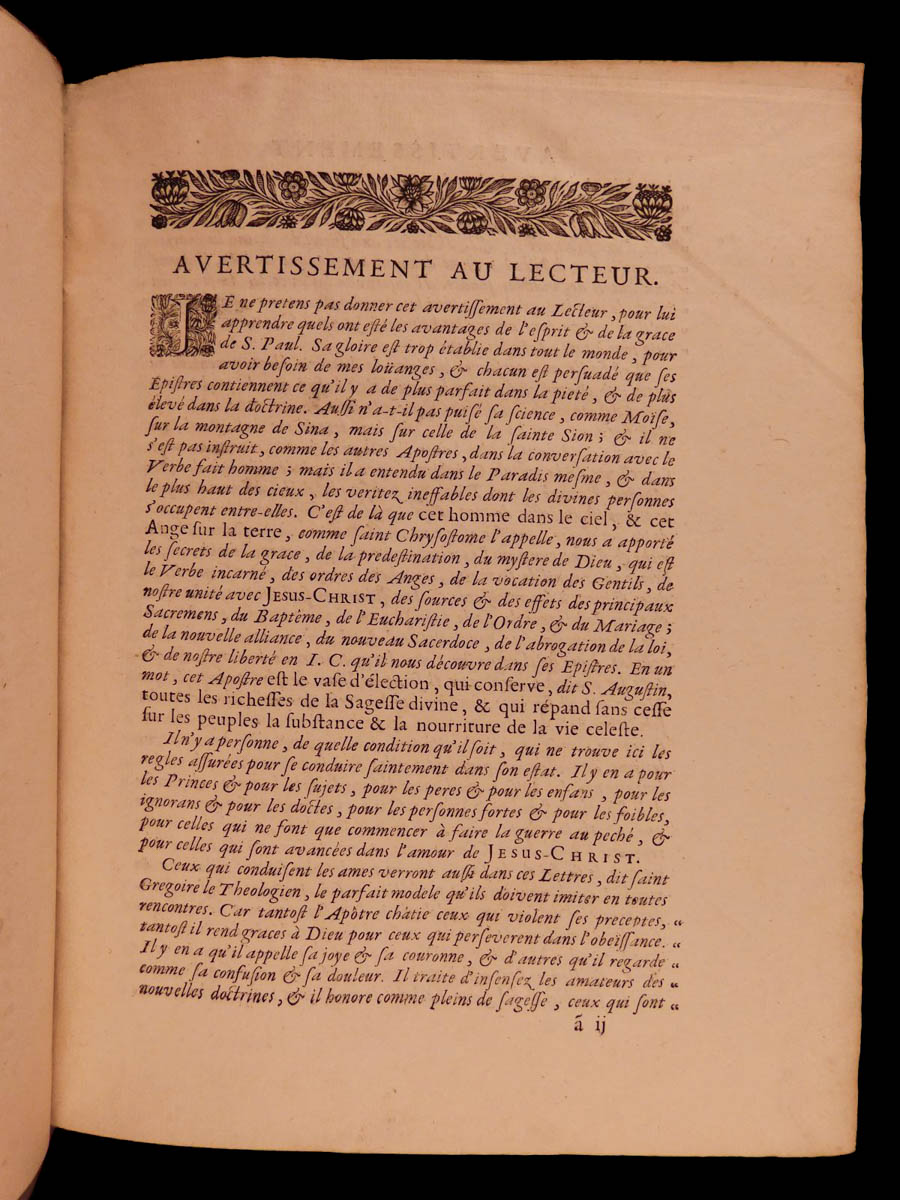 AVERTISSEMENT AU LECTEUR.
JE ne pretens pas donner cet avertiſſement au Lecteur, pour lui
apprendre quels ont eſté les avantages de l'eſprit & de la grace
de S. Paul. Sa gloire eſt trop établie dans tout le monde, pour
avoir beſoin de mes loüanges, & chacun eſt perſuadé que ſes
Epiſtres contiennent ce qu'il y a de plus parfait dans la pieté, & de plus
élevé dans la doctrine. Auſſi n'a-t-il pas puiſé ſa science, comme Moïſe,
ſur la montagne de Sina, mais ſur celle de la ſainte Sion; & il ne
s'eſt pas inſtruit, comme les autres Apoſtres, dans la converſation avec le
Verbe fait homme; mais il a entendu dans le Paradis meſme, & dans
le plus haut des cieux, les veritez ineffables dont les divines perſonnes
s'occupent entre-elles. C'eſt de là que cet homme dans le ciel, & cet
Ange ſur la terre, comme ſaint Chryſoſtome l'appelle, nous a apporté
les ſecrets de la grace, de la predeſtination, du myſtere de Dieu, qui eſt
le Verbe incarné, des ordres des Anges, de la vocation des Gentils, de
noſtre unité avec JESUS-CHRIST, des ſources & des effets des principaux
Sacremens, du Baptême, de l'Euchariſtie, de l'Ordre, & du Mariage;
de la nouvelle alliance, du nouveau Sacerdoce, de l'abrogation de la loi,
& de noſtre liberté en I. C. qu'il nous découvre dans ſes Epiſtres. En un
mot, cet Apoſtre eſt le vaſe d'élection, qui conſerve, dit S. Auguſtin,
toutes les richeſſes de la Sageſſe divine, & qui répand ſans ceſſe
ſur les peuples la ſubſtance & la nourriture de la vie celeſte.
Il n'y a perſonne, de quelle condition qu'il ſoit, qui ne trouve ici les
regles aſſurées pour ſe conduire ſaintement dans ſon eſtat. Il y en a pour
les Princes & pour les ſujets, pour les peres & pour les enfans, pour les
ignorans & pour les doctes, pour les perſonnes fortes & pour les foibles,
pour celles qui ne font que commencer à faire la guerre au peché, &
pour celles qui ſont avancées dans l'amour de JESUS-CHRIST.
Ceux qui conduiſent les ames verront auſſi dans ces Lettres, dit ſaint
Gregoire le Theologien, le parfait modele qu'ils doivent imiter en toutes
rencontres. Car tantoſt l'Apôtre châtie ceux qui violent ſes preceptes, „
tantoſt il rend graces à Dieu pour ceux qui perſeverent dans l'obeïſſance. „
Il y en a qu'il appelle ſa joye & ſa couronne, & d'autres qu'il regarde „
comme ſa confuſion & ſa douleur. Il traite d'inſenſez les amateurs des „
nouvelles doctrines, & il honore comme pleins de ſageſſe, ceux qui ſont „
ã ij